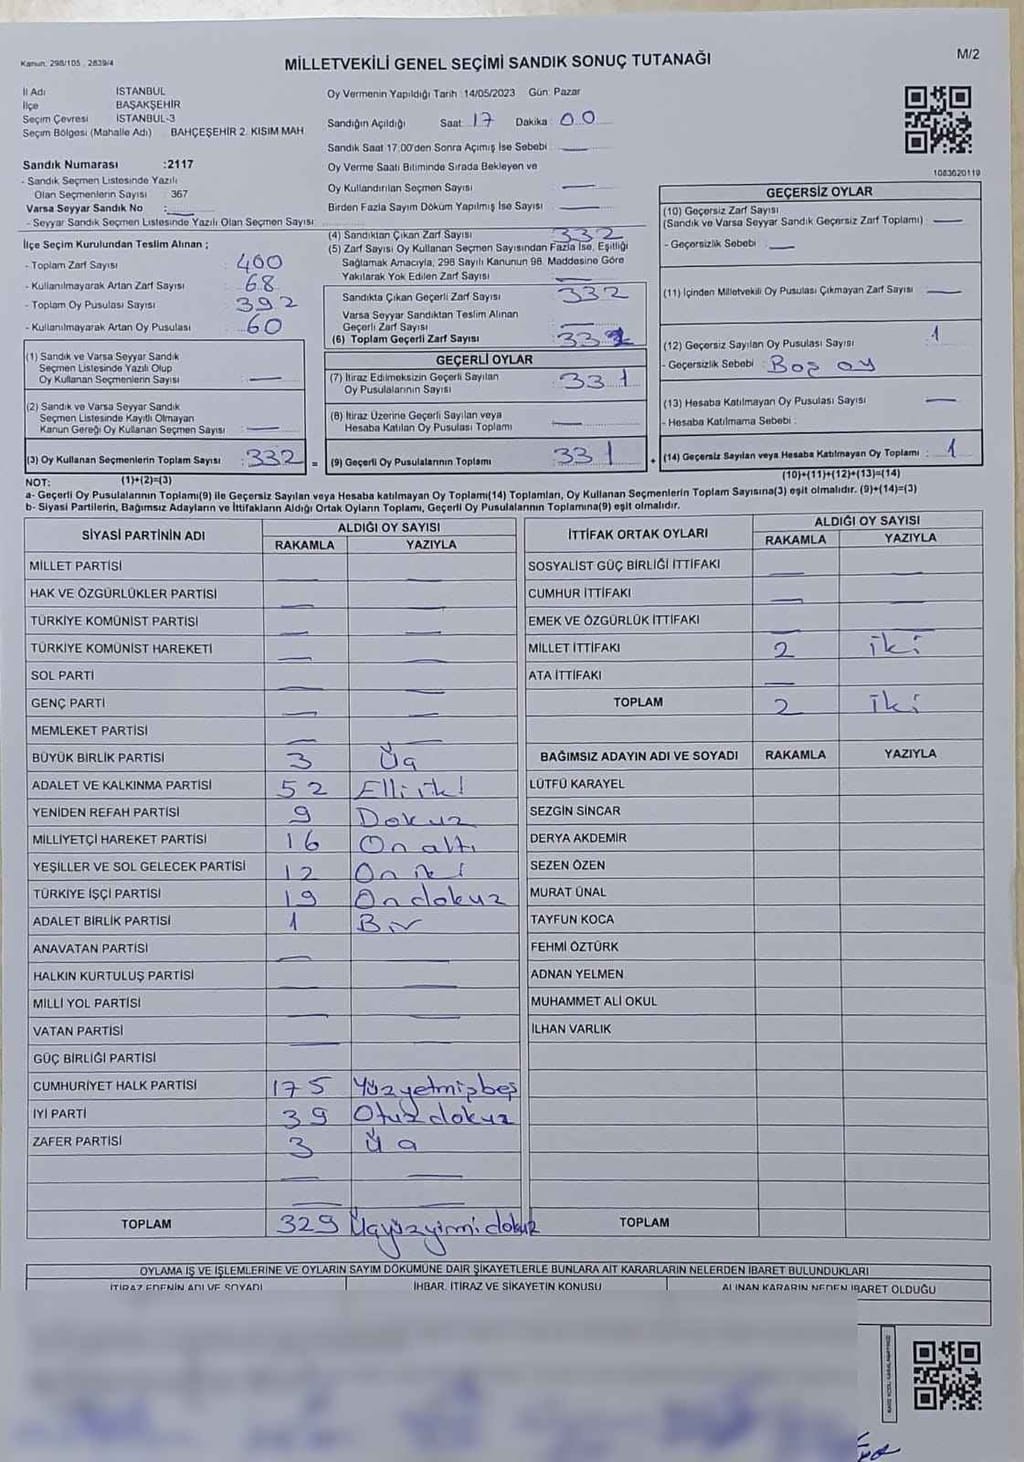 Kanun: 298/105 , 2839/4
MİLLETVEKİLİ GENEL SEÇİMİ SANDIK SONUÇ TUTANAĞI
M/2
İl Adı İSTANBUL
İlçe BAŞAKŞEHİR
Seçim Çevresi İSTANBUL-3
Seçim Bölgesi (Mahalle Adı) BAHÇEŞEHİR 2. KISIM MAH.
Sandık Numarası :2117
- Sandık Seçmen Listesinde Yazılı
Olan Seçmenlerin Sayısı : 367
Varsa Seyyar Sandık No : —
- Seyyar Sandık Seçmen Listesinde Yazılı Olan Seçmen Sayısı:
Oy Vermenin Yapıldığı Tarih :14/05/2023 Gün: Pazar
Sandığın Açıldığı Saat: 17 Dakika: 00
Sandık Saat 17.00'den Sonra Açımış İse Sebebi : —
Oy Verme Saati Bitiminde Sırada Bekleyen ve
Oy Kullandırılan Seçmen Sayısı —
Birden Fazla Sayım Döküm Yapılmış İse Sayısı —
1083620119
İlçe Seçim Kurulundan Teslim Alınan ;
- Toplam Zarf Sayısı : 400
- Kullanılmayarak Artan Zarf Sayısı : 68
- Toplam Oy Pusulası Sayısı : 392
- Kullanılmayarak Artan Oy Pusulası : 60
(1) Sandık ve Varsa Seyyar Sandık
Seçmen Listesinde Yazılı Olup
Oy Kullanan Seçmenlerin Sayısı : —
(2) Sandık ve Varsa Seyyar Sandık
Seçmen Listesinde Kayıtlı Olmayan
Kanun Gereği Oy Kullanan Seçmen Sayısı : —
(3) Oy Kullanan Seçmenlerin Toplam Sayısı : 332 =
(4) Sandıktan Çıkan Zarf Sayısı 332
(5) Zarf Sayısı Oy Kullanan Seçmen Sayısından Fazla İse, Eşitliği
Sağlamak Amacıyla, 298 Sayılı Kanunun 98. Maddesine Göre
Yakılarak Yok Edilen Zarf Sayısı : —
Sandıkta Çıkan Geçerli Zarf Sayısı : 332
Varsa Seyyar Sandıktan Teslim Alınan
Geçerli Zarf Sayısı : —
(6) Toplam Geçerli Zarf Sayısı : 332
GEÇERLİ OYLAR
(7) İtiraz Edilmeksizin Geçerli Sayılan
Oy Pusulalarının Sayısı : 331
(8) İtiraz Üzerine Geçerli Sayılan veya
Hesaba Katılan Oy Pusulası Toplamı : —
(9) Geçerli Oy Pusulalarının Toplamı : 331 +
GEÇERSİZ OYLAR
(10) Geçersiz Zarf Sayısı
(Sandık ve Varsa Seyyar Sandık Geçersiz Zarf Toplamı) : —
- Geçersizlik Sebebi : —
(11) İçinden Milletvekili Oy Pusulası Çıkmayan Zarf Sayısı : —
(12) Geçersiz Sayılan Oy Pusulası Sayısı : 1
- Geçersizlik Sebebi : Boş oy
(13) Hesaba Katılmayan Oy Pusulası Sayısı : —
- Hesaba Katılmama Sebebi :
(14) Geçersiz Sayılan veya Hesaba Katılmayan Oy Toplamı : 1
NOT: (1)+(2)=(3)
(10)+(11)+(12)+(13)=(14)
a- Geçerli Oy Pusulalarının Toplamı(9) ile Geçersiz Sayılan veya Hesaba katılmayan Oy Toplamı(14) Toplamları, Oy Kullanan Seçmenlerin Toplam Sayısına(3) eşit olmalıdır. (9)+(14)=(3)
b- Siyasi Partilerin, Bağımsız Adayların ve İttifakların Aldığı Ortak Oyların Toplamı, Geçerli Oy Pusulalarının Toplamına(9) eşit olmalıdır.
SİYASİ PARTİNİN ADI ALDIĞI OY SAYISI
RAKAMLA YAZIYLA
MİLLET PARTİSİ — —
HAK VE ÖZGÜRLÜKLER PARTİSİ — —
TÜRKİYE KOMÜNİST PARTİSİ — —
TÜRKİYE KOMÜNİST HAREKETİ — —
SOL PARTİ — —
GENÇ PARTİ — —
MEMLEKET PARTİSİ — —
BÜYÜK BİRLİK PARTİSİ 3 Üç
ADALET VE KALKINMA PARTİSİ 52 Elliiki
YENİDEN REFAH PARTİSİ 9 Dokuz
MİLLİYETÇİ HAREKET PARTİSİ 16 On altı
YEŞİLLER VE SOL GELECEK PARTİSİ 12 On iki
TÜRKİYE İŞÇİ PARTİSİ 19 On dokuz
ADALET BİRLİK PARTİSİ 1 Bir
ANAVATAN PARTİSİ — —
HALKIN KURTULUŞ PARTİSİ —
MİLLİ YOL PARTİSİ — —
VATAN PARTİSİ — —
GÜÇ BİRLİĞİ PARTİSİ
CUMHURİYET HALK PARTİSİ 175 Yüzyetmişbeş
İYİ PARTİ 39 Otuzdokuz
ZAFER PARTİSİ 3 Üç
— —
— —
TOPLAM 329 Üçyüzyirmidokuz
İTTİFAK ORTAK OYLARI ALDIĞI OY SAYISI
RAKAMLA YAZIYLA
SOSYALİST GÜÇ BİRLİĞİ İTTİFAKI — —
CUMHUR İTTİFAKI — —
EMEK VE ÖZGÜRLÜK İTTİFAKI — —
MİLLET İTTİFAKI 2 iki
ATA İTTİFAKI —
TOPLAM 2 iki
BAĞIMSIZ ADAYIN ADI VE SOYADI RAKAMLA YAZIYLA
LÜTFÜ KARAYEL
SEZGİN SİNCAR
DERYA AKDEMİR
SEZEN ÖZEN
MURAT ÜNAL
TAYFUN KOCA
FEHMİ ÖZTÜRK
ADNAN YELMEN
MUHAMMET ALİ OKUL
İLHAN VARLIK
TOPLAM
OYLAMA İŞ VE İŞLEMLERİNE VE OYLARIN SAYIM DÖKÜMÜNE DAİR ŞİKAYETLERLE BUNLARA AİT KARARLARIN NELERDEN İBARET BULUNDUKLARI
İTİRAZ EDENİN ADI VE SOYADI İHBAR, İTİRAZ VE ŞİKAYETİN KONUSU ALINAN KARARIN NEDEN İBARET OLDUĞU